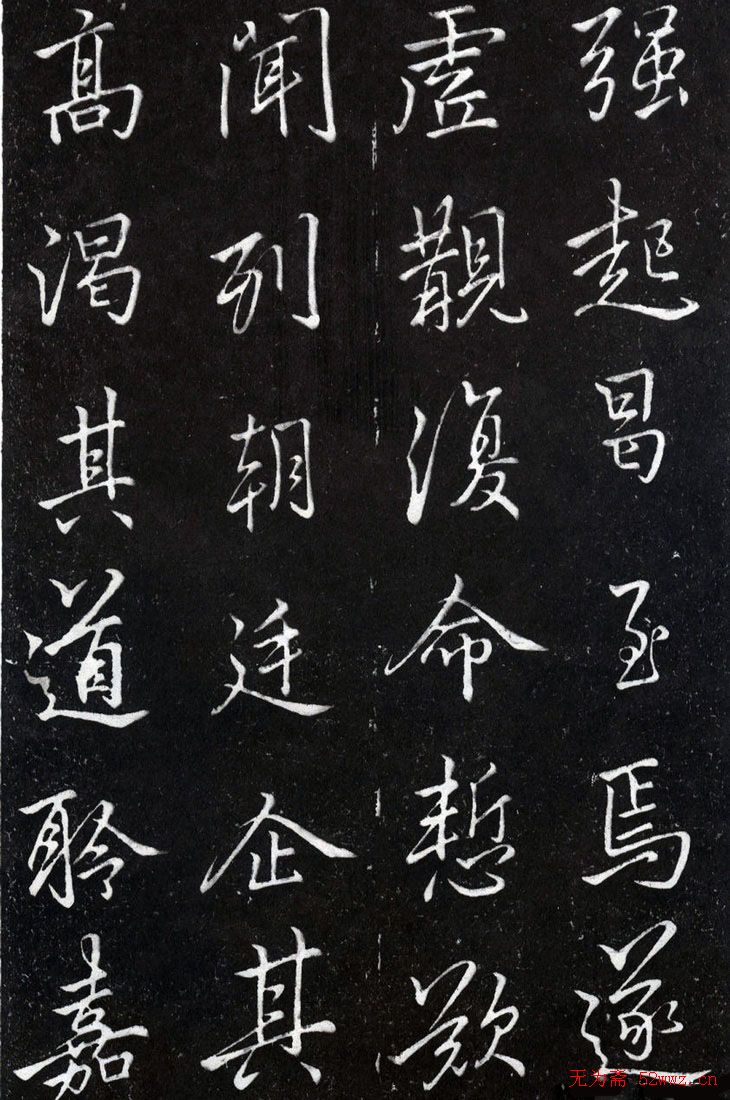 强起昌至焉遂
虛覲復命慙歎
聞列朝廷企其
髙渴其道聆嘉
无为斋 52wwz.cn